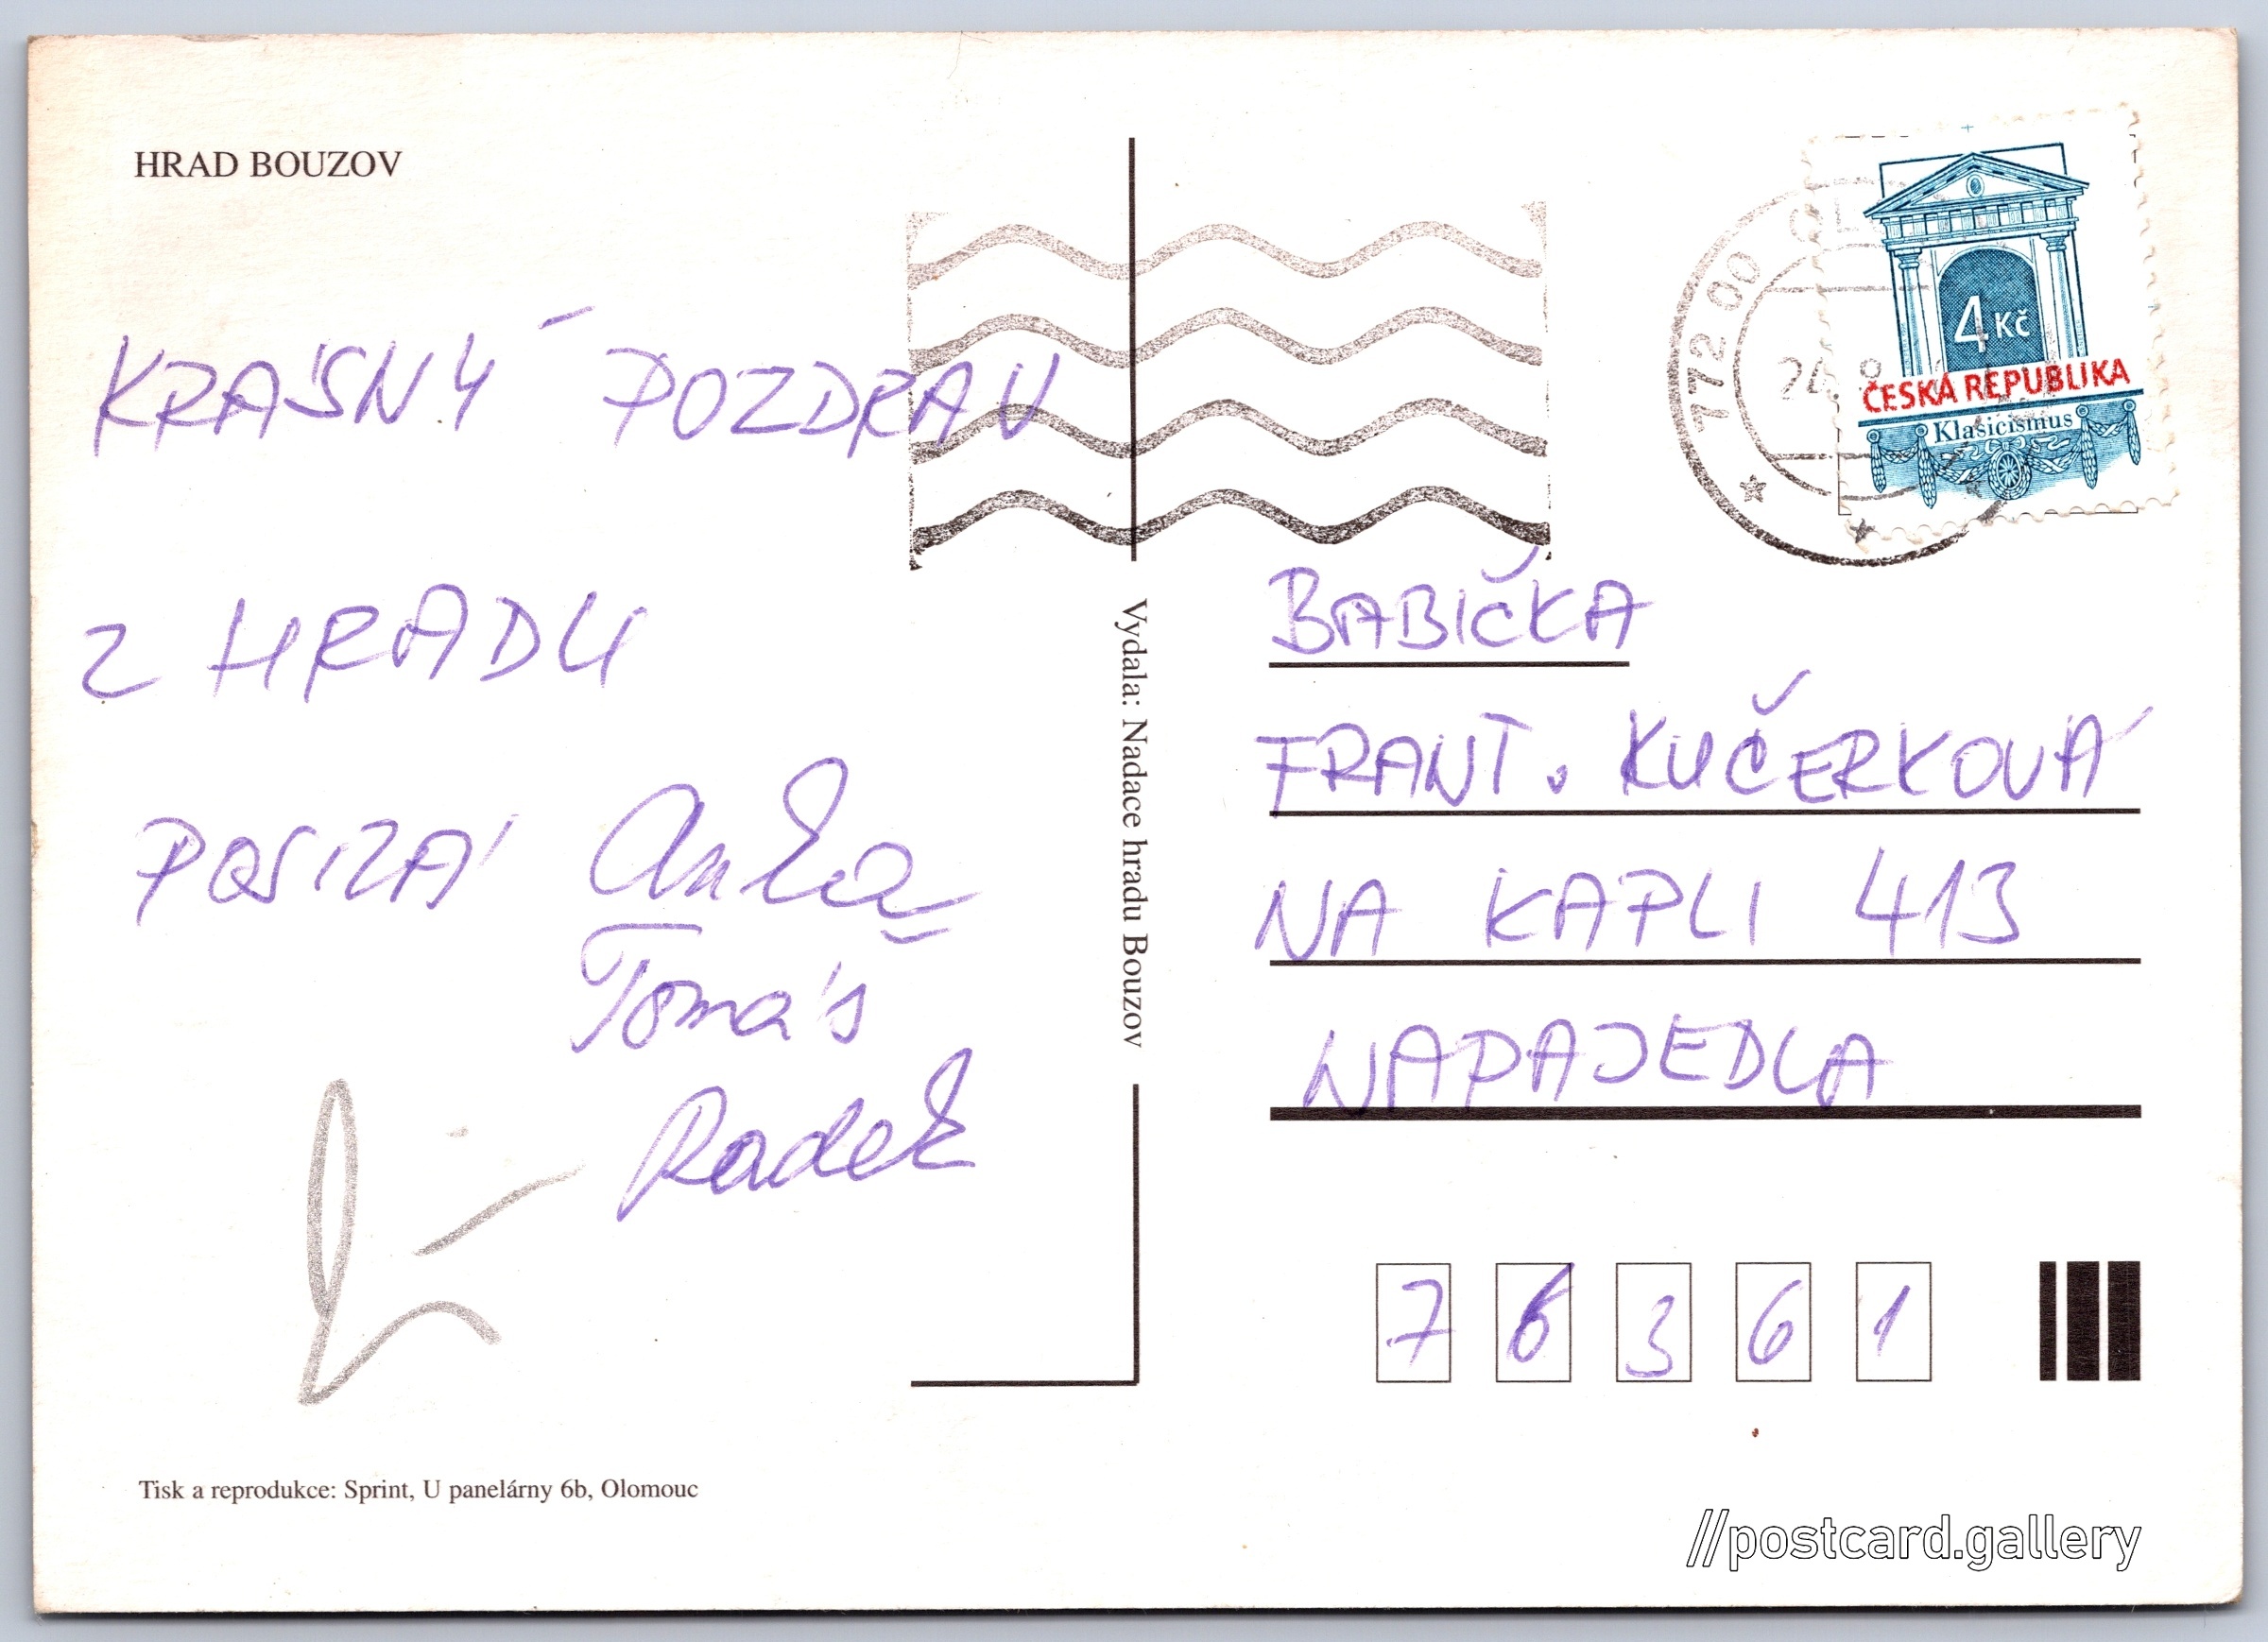 HRAD BOUZOV
KRÁSNÝ POZDRAV
Z HRADU
POSÍLÁ Anka
Tomáš
Radek
Tisk a reprodukce: Sprint, U panelárny 6b, Olomouc
Vydala: Nadace hradu Bouzov
772 00 OL
24. 8
4 Kč
ČESKÁ REPUBLIKA
Klasicismus
BABIČKA
FRANT. KUČERKOVÁ
NA KAPLI 413
NAPAJEDLA
7 6 3 6 1
//postcard.gallery